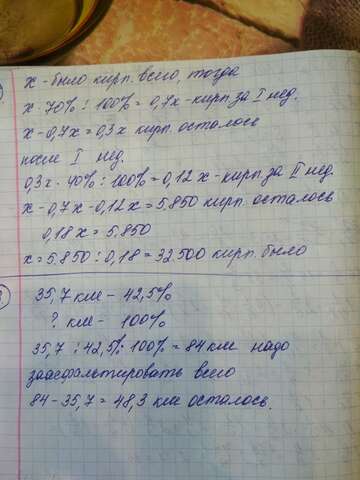 х - было кирп. всего, тогда
х · 70% : 100% = 0,7х - кирп. за I нед.
х - 0,7х = 0,3х кирп. осталось
после I нед.
0,3х · 40% : 100% = 0,12х - кирп. за II нед.
х - 0,7х - 0,12х = 5.850 кирп. осталось
0,18х = 5.850
х = 5.850 : 0,18 = 32.500 кирп. было
35,7 км - 42,5%
? км - 100%
35,7 : 42,5% · 100% = 84 км надо
заасфальтировать всего
84 - 35,7 = 48,3 км осталось.